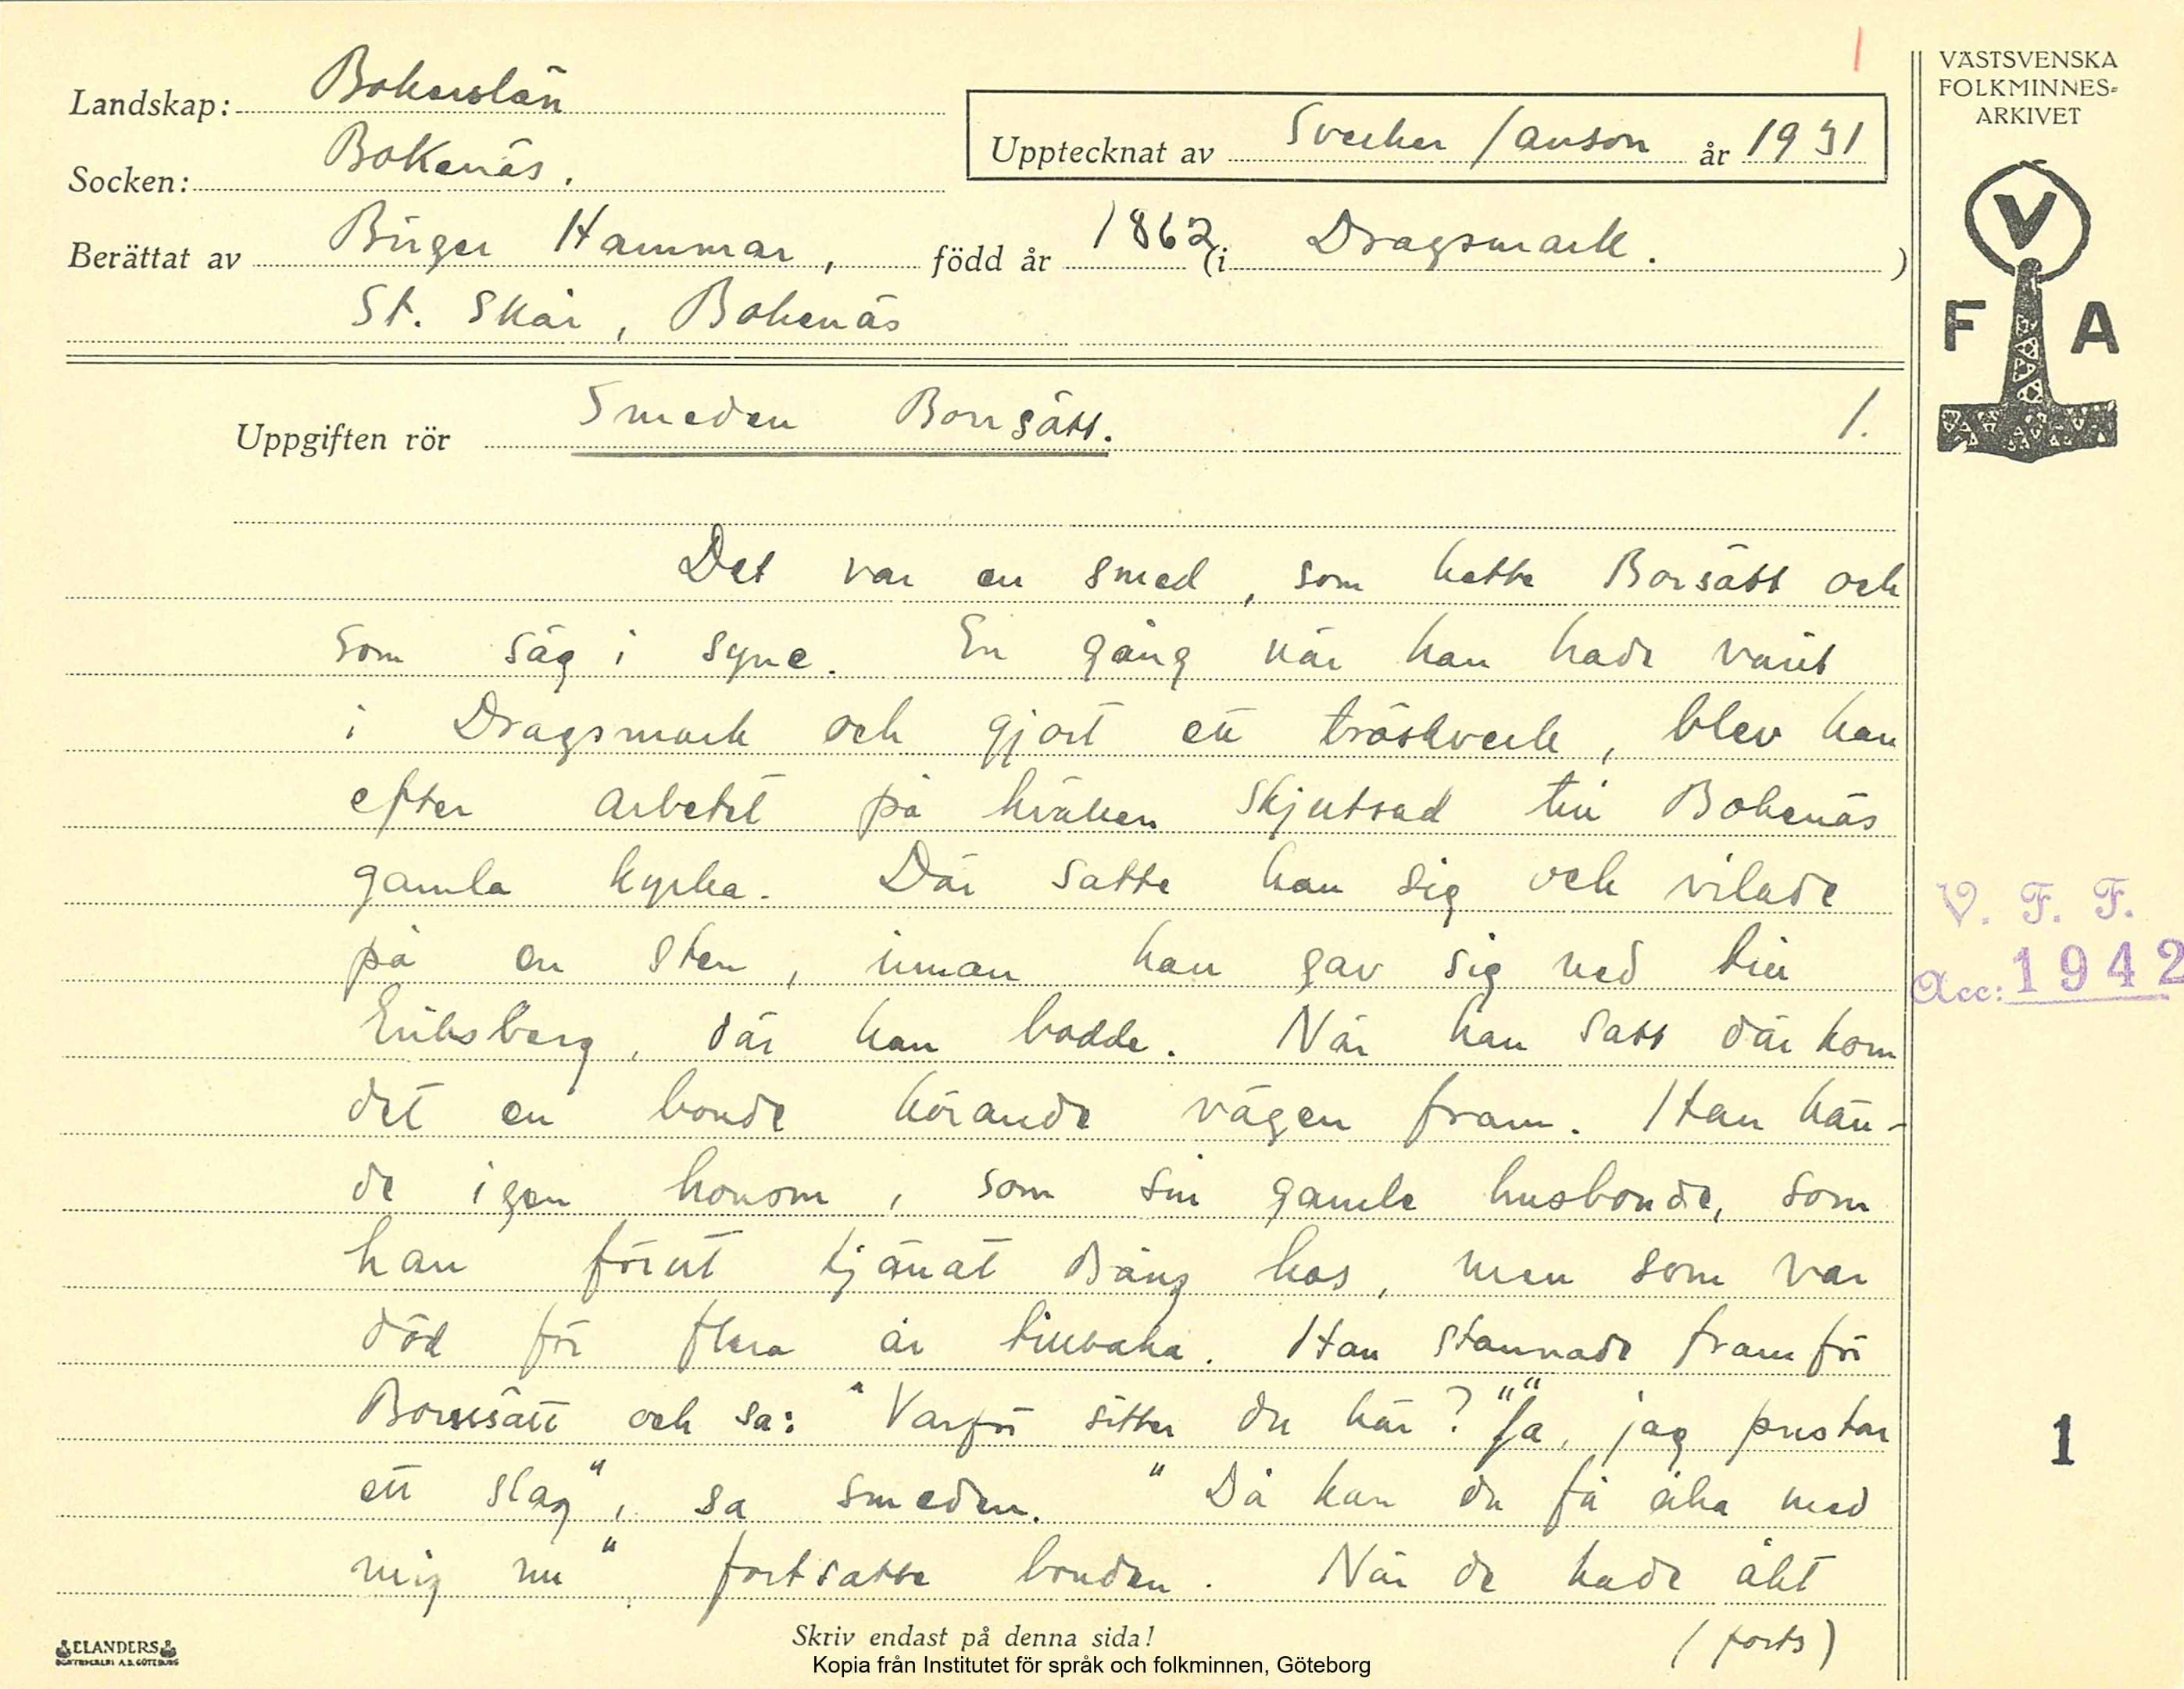 1
VÄSTSVENSKA
FOLKMINNES-
ARKIVET
Landskap: Bohuslän
Upptecknat av Sverker Janson år 1931
Socken: Bokenäs.
Berättat av Birger Hammar, född år 1862 (i Dragsmark.)
St. Skår, Bokenäs
V
F A
Uppgiften rör Smeden Borrsätt. 1.
Det var en smed, som hette Borsätt och
som såg i syne. En gång när han hade varit
i Dragsmark och gjort ett tröskverk, blev han
efter arbetet på kvällen skjutsad till Bokenäs
gamla kyrka. Där satte han sig och vilade
på en sten, innan han gav sig ned till
Eriksberg, där han bodde. När han satt där kom
det en bonde körande vägen fram. Han kän-
de igen honom, som sin gamle husbonde, som
han förut tjänat dräng hos, men som var
död för flera år tillbaka. Han stannade framför
Borrsätt och sa: "Varför sitter du här?" "Ja, jag pustar
ett slag", sa smeden. "Då kan du få åka med
mig nu" fortsatte bonden. När de hade åkt
(forts)
V. F. F.
Acc: 1942
1
Skriv endast på denna sida!
ELANDERS
BOKTRYCKERI A.B. GÖTEBORG
Kopia från Institutet för språk och folkminnen, Göteborg